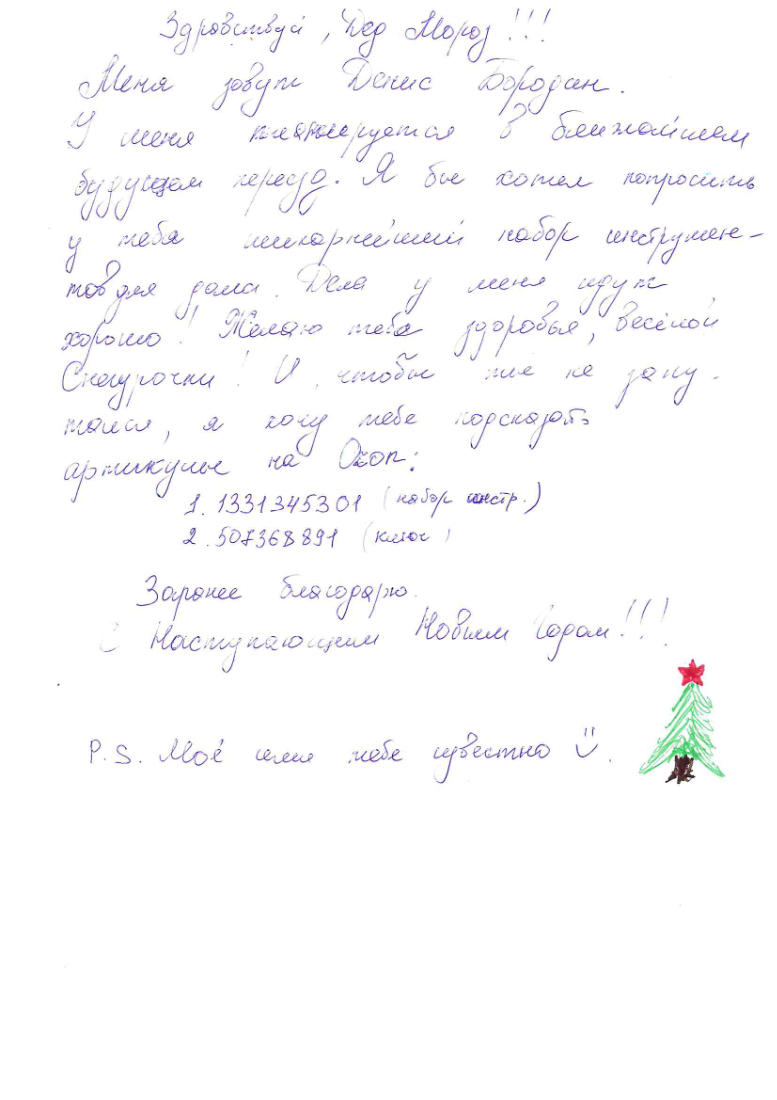 Здравствуй, Дед Мороз!!!
Меня зовут Денис Бородин.
У меня планируется в ближайшем
будущем переезд. Я бы хотел попросить
у тебя шикарнейший набор инструмен-
тов для дома. Дела у меня идут
хорошо! Желаю тебе здоровья, весёлой
Снегурочки! И, чтобы ты не запу-
тался, я хочу тебе подсказать
артикулы на Ozon:
1. 1331345301 (набор инстр.)
2. 507368891 (ключ)
Заранее благодарю.
С Наступающим Новым Годом!!!
P.S. Моё имя тебе известно